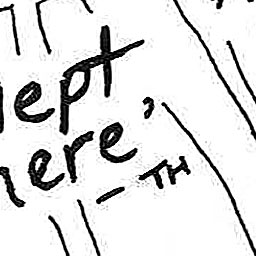 lept
here’
- TH